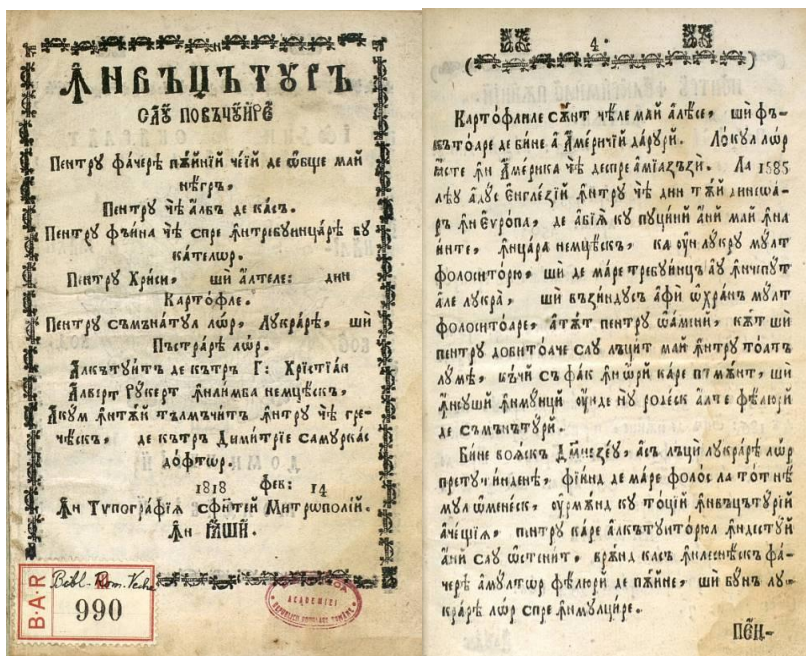 Ꙟнвъцътꙋръ
саꙋ повъчꙋире
Пентрꙋ фачере пѫйний чеїй де ѡбще май
нѣгръ,
Пентрꙋ чѣ албъ де касъ.
Пентрꙋ фъина чѣ спре ꙟнтребꙋинцаре бꙋ
кателѡр.
Пентрꙋ Хриси, ши алтеле: дин
Картофле.
Пентрꙋ съмънатꙋл лѡр, Лꙋкраре, ши
Пъстраре лѡр.
Алкътꙋит де кътръ Г: Хрїстїан
Алберт Рꙋкерт ꙟнлимба немцѣскъ,
Акꙋм ꙟнтѫй тълмъчит ꙟнтрꙋ чѣ гре-
чѣскъ, де кътръ Димитрїе Самꙋркас
дофтѡр.
1818 фев: 14
Ꙟн Типографїѧ сфинтей Митрополїй.
Ꙟн Ꙗшй.
B·A·R
Bibl. Rom. Veche
990
ACADEMIEI
4·
Картофлиле сѫнт чѣле май алѣсе, ши фъ-
кътоаре де бине а Америчїй дарꙋри. Локꙋл лѡр
ꙗсте ꙟн Америка чѣ деспре амїазъзи. Ла 1585
лѣꙋ адꙋс Енглезїй ꙟнтрꙋ чѣ дин тѫй динисоа-
ръ ꙟн Еѵропа, де абїѧ кꙋ пꙋциний аний май ꙟна
инте, ꙟнцара немцѣскъ, ка ꙋн лꙋкрꙋ мꙋлт
фолоситорю, ши де маре требꙋинцъ аꙋ ꙟнчепꙋт
але лꙋкра, ши възиндꙋсъ афи ѡхранъ мꙋлт
фолоситоаре, атѫт пентрꙋ ѡамений, кѫт ши
пентрꙋ добитоаче саꙋ лъцит май ꙟнтрꙋ тоатъ
лꙋмѣ, въчи съ фак ꙟн ѡри каре пъмѫнт, ши
ꙟнсꙋши ꙟнмꙋнци ꙋнде нꙋ родеск алте фѣлюри
де съмънътꙋри.
Бине воꙗскъ Дꙋмнезеꙋ, асъ лъци лꙋкраре лѡр
претꙋтинденѣ, фїинд де маре фолос ла тот нѣ
мꙋл ѡменеск, ꙋрмѫнд кꙋ тоцїй ꙟнвъцътꙋрїй
ачещїѧ, пентрꙋ каре алкътꙋиторюл ꙟндестꙋй
аний саꙋ ѡстенит, врѫнд касъ ꙟнлеснѣскъ фа-
чере амꙋлтѡр фѣлюри де пѫйне, ши бꙋнъ лꙋ-
краре лѡр спре ꙟнмꙋлцире.
Пен-